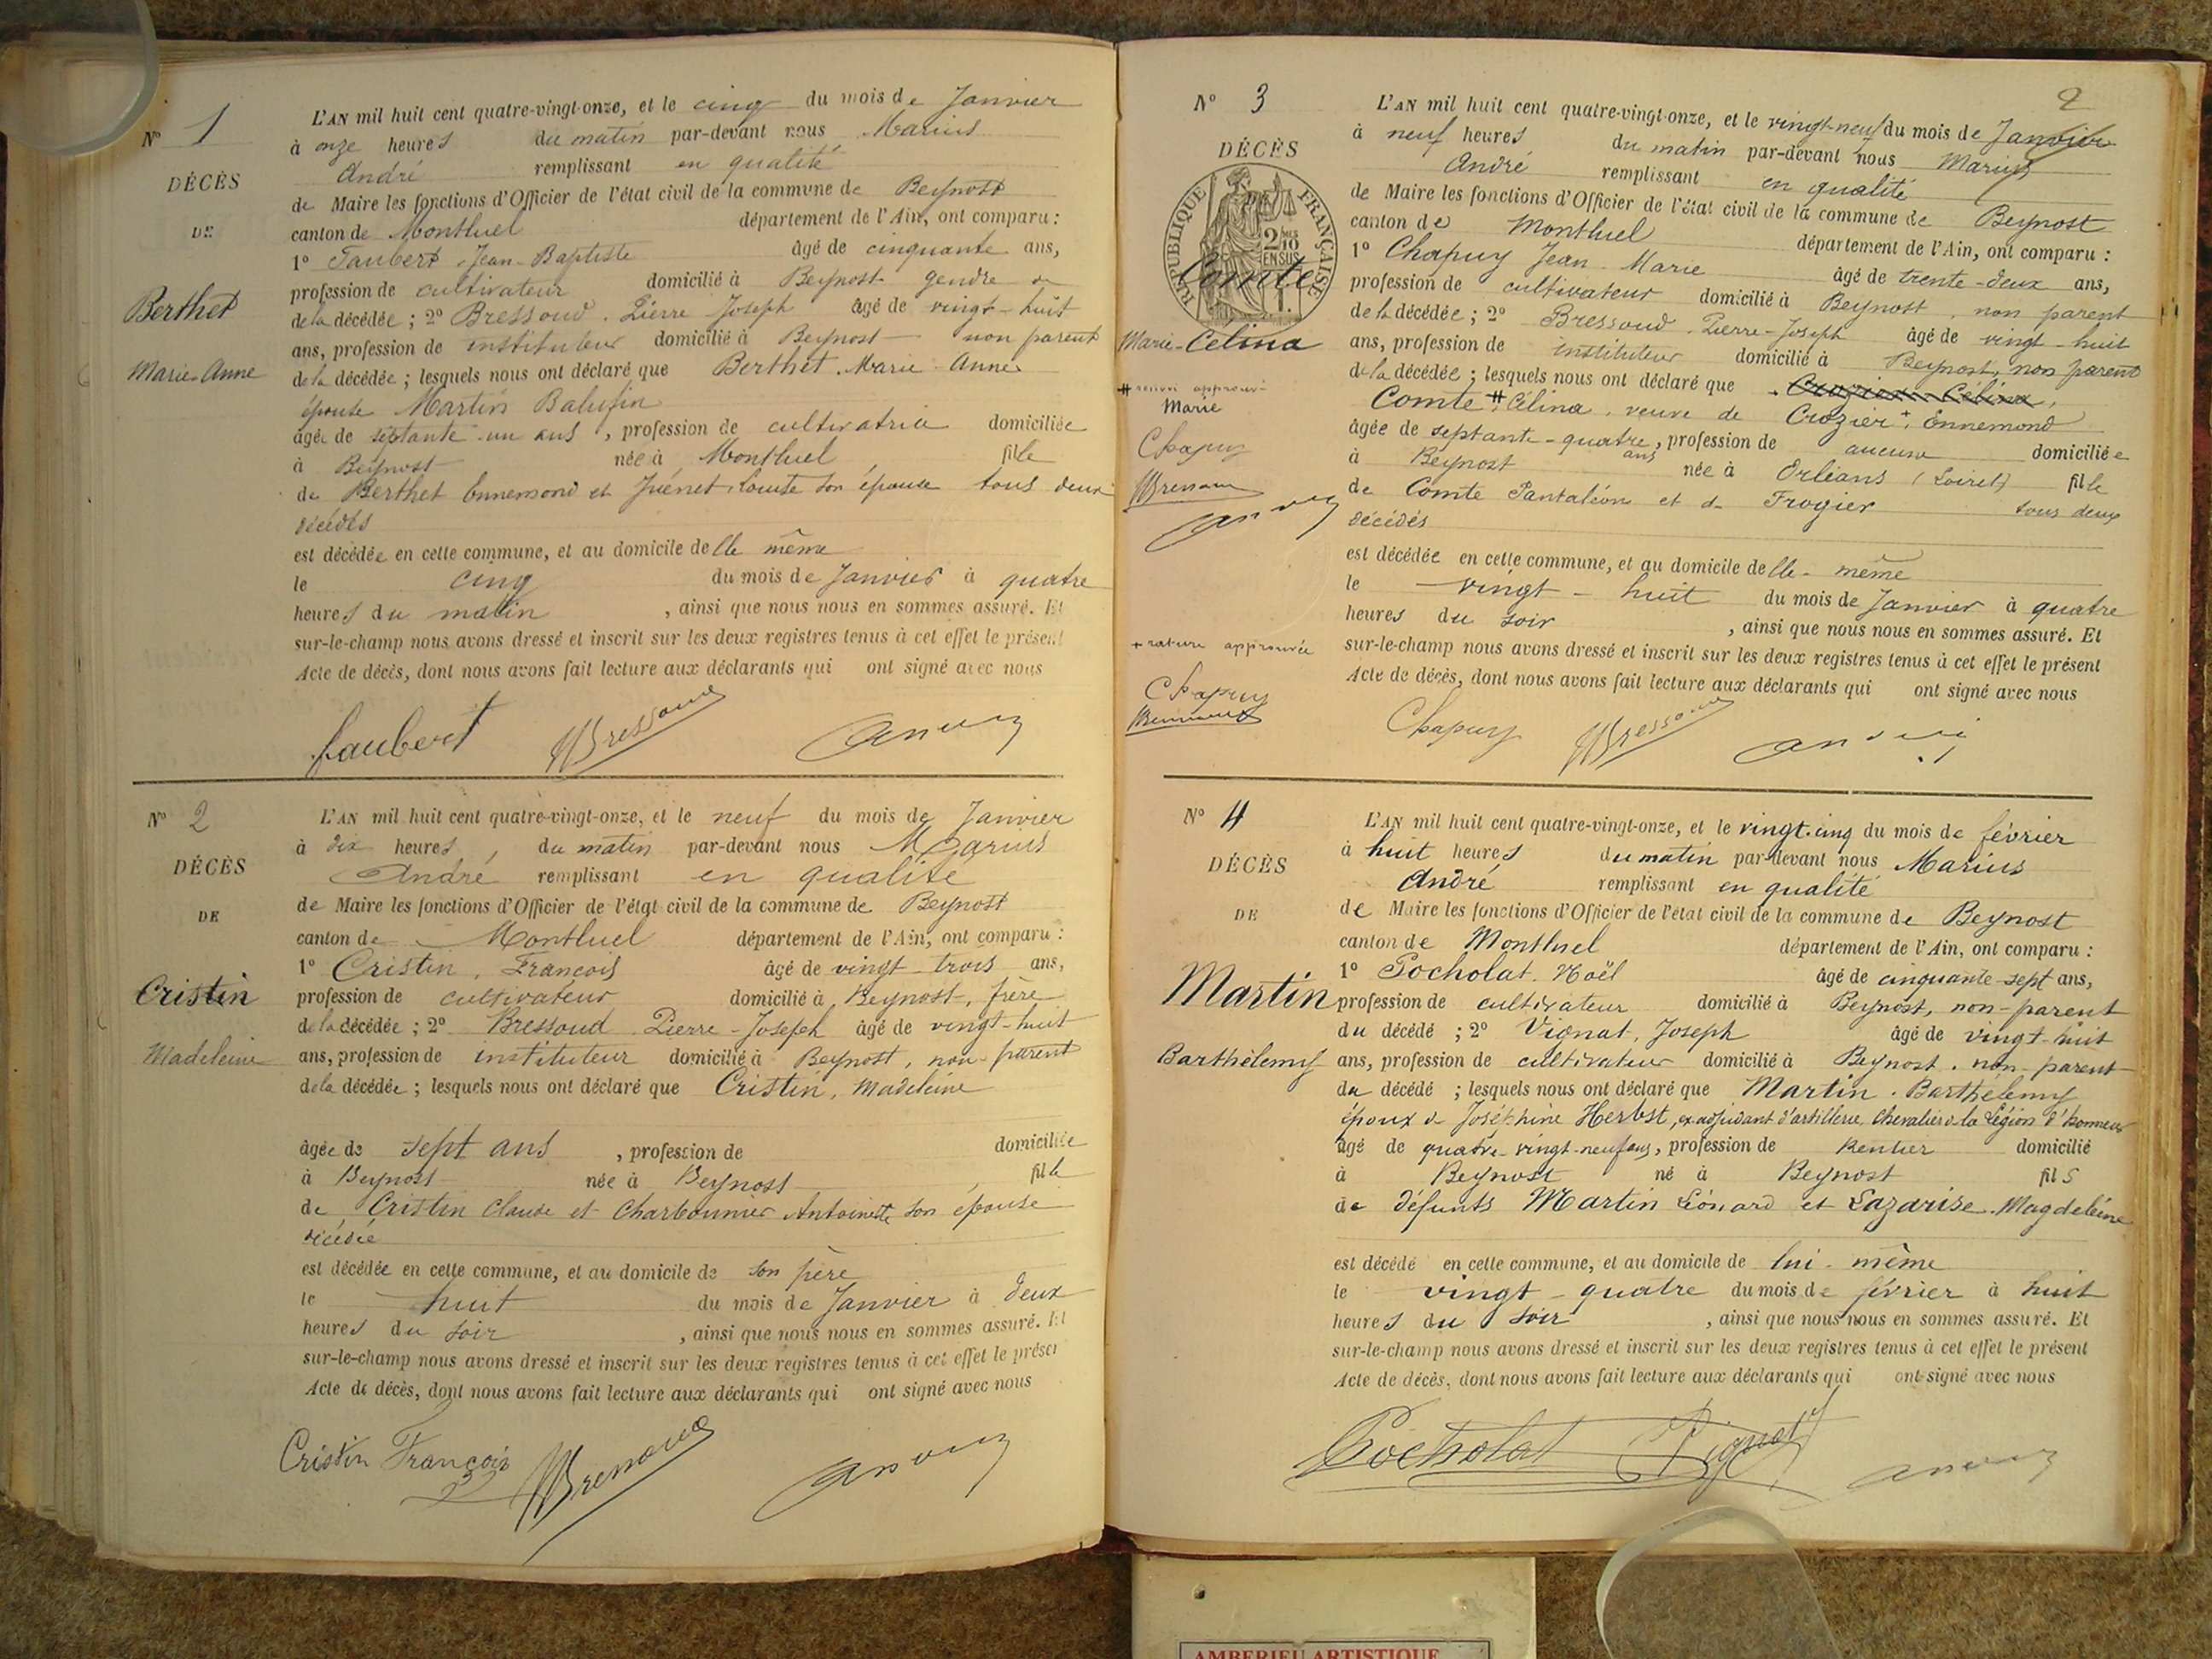 N° 1
DÉCÈS
DE
Berthet
Marie-Anne
L'AN mil huit cent quatre-vingt-onze, et le cinq du mois de Janvier
à onze heures du matin par-devant nous Marius
André remplissant en qualité
de Maire les fonctions d'Officier de l'état civil de la commune de Beynost
canton de Montluel département de l'Ain, ont comparu :
1° Faubert Jean-Baptiste âgé de cinquante ans,
profession de cultivateur domicilié à Beynost gendre
de la décédée ; 2° Bressoud Pierre Joseph âgé de vingt-huit
ans, profession de instituteur domicilié à Beynost non parent
de la décédée ; lesquels nous ont déclaré que Berthet Marie Anne
épouse Martin
âgée de septante un ans , profession de cultivatrice domiciliée
à Beynost née à Montluel fille
de Berthet Ennemond et son épouse tous deux
décédés
est décédée en cette commune, et au domicile de lle même
le cinq du mois de Janvier à quatre
heures du matin , ainsi que nous nous en sommes assuré. Et
sur-le-champ nous avons dressé et inscrit sur les deux registres tenus à cet effet le présent
Acte de décès, dont nous avons fait lecture aux déclarants qui ont signé avec nous
Faubert Bressoud André
N° 2
DÉCÈS
DE
Cristin
Madeleine
L'AN mil huit cent quatre-vingt-onze, et le neuf du mois de Janvier
à dix heures du matin par-devant nous Marius
André remplissant en qualité
de Maire les fonctions d'Officier de l'état civil de la commune de Beynost
canton de Montluel département de l'Ain, ont comparu :
1° Cristin, François âgé de vingt-trois ans,
profession de cultivateur domicilié à Beynost, frère
de la décédée ; 2° Bressoud Pierre-Joseph âgé de vingt-huit
ans, profession de instituteur domicilié à Beynost, non-parent
de la décédée ; lesquels nous ont déclaré que Cristin, Madeleine
âgée de sept ans , profession de domiciliée
à Beynost née à Beynost, fille
de Cristin Claude et Charbonnier Antoinette son épouse
décédée
est décédée en cette commune, et au domicile de son père
le huit du mois de Janvier à deux
heures du soir , ainsi que nous nous en sommes assuré. Et
sur-le-champ nous avons dressé et inscrit sur les deux registres tenus à cet effet le présen
Acte de décès, dont nous avons fait lecture aux déclarants qui ont signé avec nous
Cristin François Bressoud André
2
N° 3
DÉCÈS
RÉPUBLIQUE FRANÇAISE
2/10 EN SUS
Comte
Marie-Célina
# renvoi approuvé
Marie
Chapuy
Bressoud
André
+ rature approuvée
Chapuy
Bressoud
L'AN mil huit cent quatre-vingt-onze, et le vingt-neuf du mois de Janvier
à neuf heures du matin par-devant nous Marius
André remplissant en qualité
de Maire les fonctions d'Officier de l'état civil de la commune de Beynost
canton de Montluel département de l'Ain, ont comparu :
1° Chapuy Jean-Marie âgé de trente-deux ans,
profession de cultivateur domicilié à Beynost, non parent
de la décédée ; 2° Bressoud Pierre-Joseph âgé de vingt-huit
ans, profession de instituteur domicilié à Beynost, non parent
de la décédée ; lesquels nous ont déclaré que Crozier Célina,
Comte # Célina, veuve de Crozier + Ennemond
âgée de septante-quatre ans, profession de aucune domiciliée
à Beynost née à Orléans (Loiret) fille
de Comte Pantaléon et de Frogier tous deux
décédés
est décédée en cette commune, et au domicile de lle-même
le vingt-huit du mois de Janvier à quatre
heures du soir , ainsi que nous nous en sommes assuré. Et
sur-le-champ nous avons dressé et inscrit sur les deux registres tenus à cet effet le présent
Acte de décès, dont nous avons fait lecture aux déclarants qui ont signé avec nous
Chapuy Bressoud André
N° 4
DÉCÈS
DE
Martin
Barthélemy
L'AN mil huit cent quatre-vingt-onze, et le vingt-cinq du mois de février
à huit heures du matin par-devant nous Marius
André remplissant en qualité
de Maire les fonctions d'Officier de l'état civil de la commune de Beynost
canton de Montluel département de l'Ain, ont comparu :
1° Pocholat, Noël âgé de cinquante-sept ans,
profession de cultivateur domicilié à Beynost, non-parent
du décédé ; 2° Vignat, Joseph âgé de vingt-huit
ans, profession de cultivateur domicilié à Beynost, non-parent
du décédé ; lesquels nous ont déclaré que Martin, Barthélemy
époux de Joséphine Herbst, ex adjudant d'artillerie, Chevalier de la Légion d'honneur
âgé de quatre-vingt-neuf ans, profession de Rentier domicilié
à Beynost né à Beynost fils
de défunts Martin Léonard et Lazarise Magdeleine
est décédé en cette commune, et au domicile de lui-même
le vingt-quatre du mois de février à huit
heures du soir , ainsi que nous nous en sommes assuré. Et
sur-le-champ nous avons dressé et inscrit sur les deux registres tenus à cet effet le présent
Acte de décès, dont nous avons fait lecture aux déclarants qui ont signé avec nous
Pocholat Vignat André
AMBERIEU ARTISTIQUE